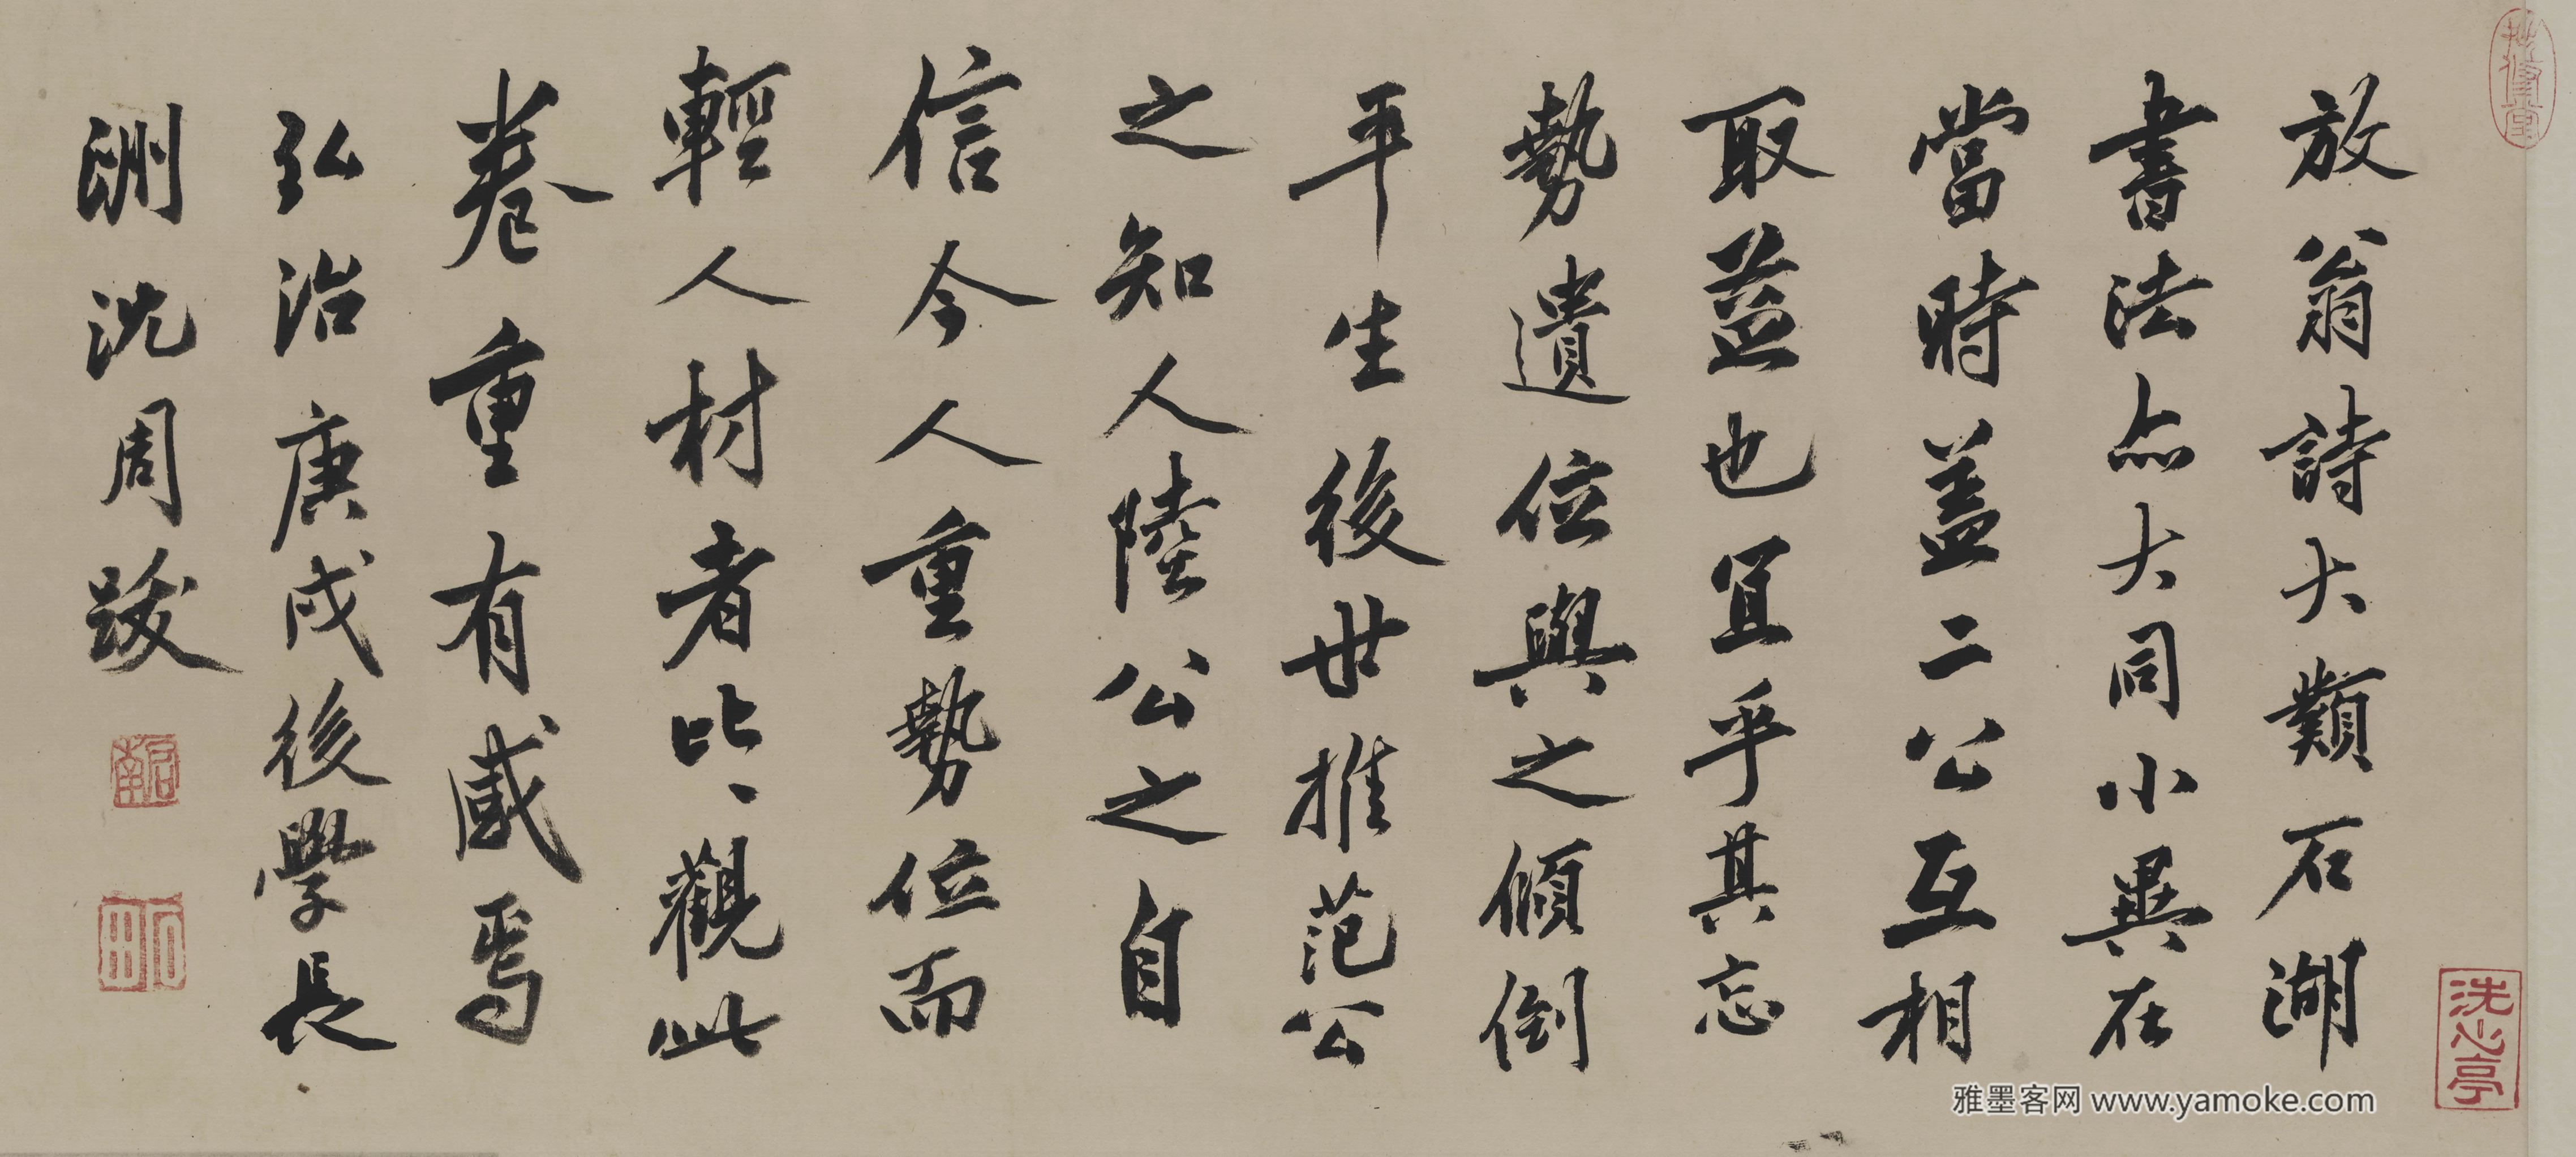 放翁詩大類石湖
書法亦大同小異在
當時蓋二公互相
取益也宜乎其忘
勢遺位與之傾倒
平生後世推范公
之知人陸公之自
信今人重勢位而
輕人材者比〻觀此
卷重有感焉
弘治庚戌後學長
洲沈周跋
啟南
石田
洗心亭
雅墨客网 www.yamoke.com